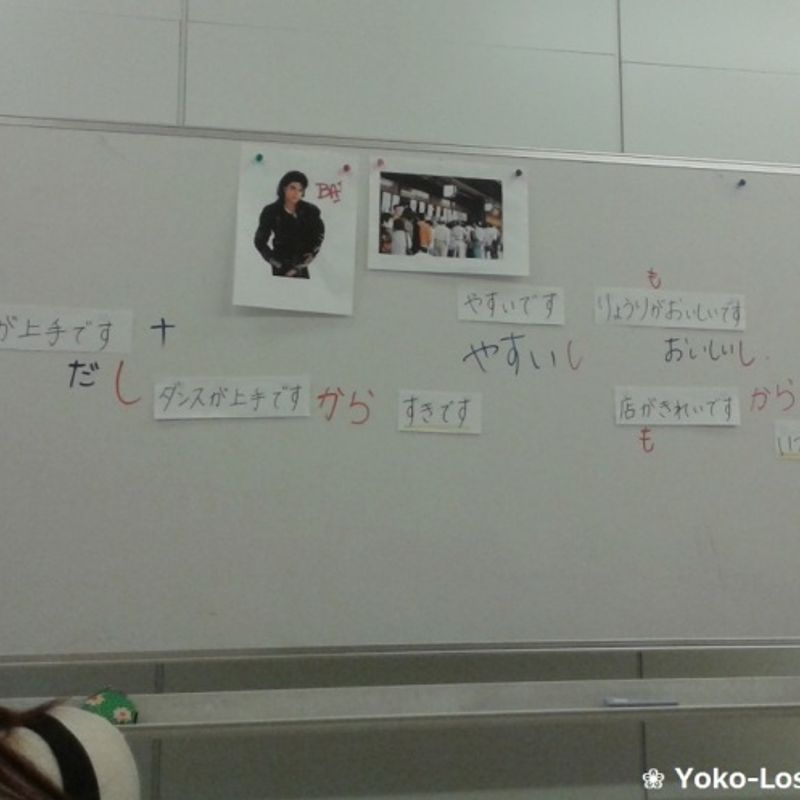 BAD
やすいです
も
りょうりがおいしいです
が上手です
＋
だし
やすいし
おいしいし.
ダンスが上手です
から
すきです
店がきれいです
から
も
❀ Yoko-Los